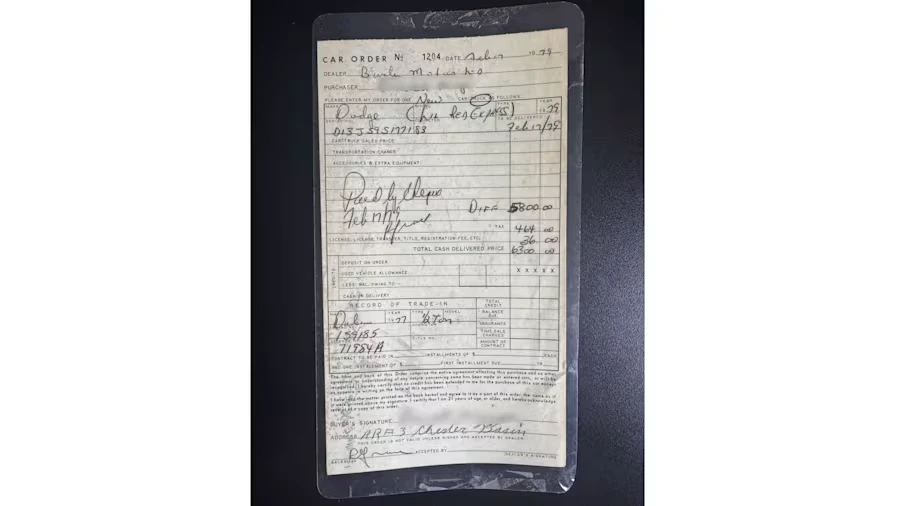 CAR ORDER No 1204 DATE 1979
DEALER Motors Ltd
PURCHASER
PLEASE ENTER MY ORDER FOR ONE New CAR/TRUCK AS FOLLOWS
MAKE TYPE YEAR
Dodge Red Express 1979
D13JS9S177183 TO BE DELIVERED Feb 17/79
CAR/TRUCK SALES PRICE
TRANSPORTATION CHARGE
ACCESSORIES & EXTRA EQUIPMENT
Paid by Cheque
Feb 17/79 DIFF 5800 00
TAX 464 00
LICENSE, LICENSE TRANSFER, TITLE, REGISTRATION FEE, ETC. 36 00
TOTAL CASH DELIVERED PRICE 6300 00
CREDITS
DEPOSIT ON ORDER
USED VEHICLE ALLOWANCE X X X X X
LESS: BAL. OWING TO
CASH ON DELIVERY
RECORD OF TRADE-IN TOTAL CREDIT
MAKE YEAR TYPE MODEL BALANCE DUE
Dodge 1977 1/2 Ton
159185 INSURANCE
TITLE NO. TIME SALE CHARGES
71984A AMOUNT OF CONTRACT
CONTRACT TO BE PAID IN INSTALLMENTS OF $ EACH
AND ONE INSTALLMENT OF $ FIRST INSTALLMENT DUE 19
The face and back of this Order comprise the entire agreement affecting this purchase and no other
agreement or understanding of any nature concerning same has been made or entered into, or will be
recognized. I hereby certify that no credit has been extended to me for the purchase of this car except
as appears in writing on the face of this agreement.
I have read the matter printed on the back hereof and agree to it as a part of this order the same as if
it were printed above my signature. I certify that I am 21 years of age, or older, and hereby acknowledge
receipt of a copy of this order.
BUYER'S SIGNATURE
ADDRESS RR#3 Chester Basin
THIS ORDER IS NOT VALID UNLESS SIGNED AND ACCEPTED BY DEALER
SALESMAN ACCEPTED BY DEALER'S SIGNATURE